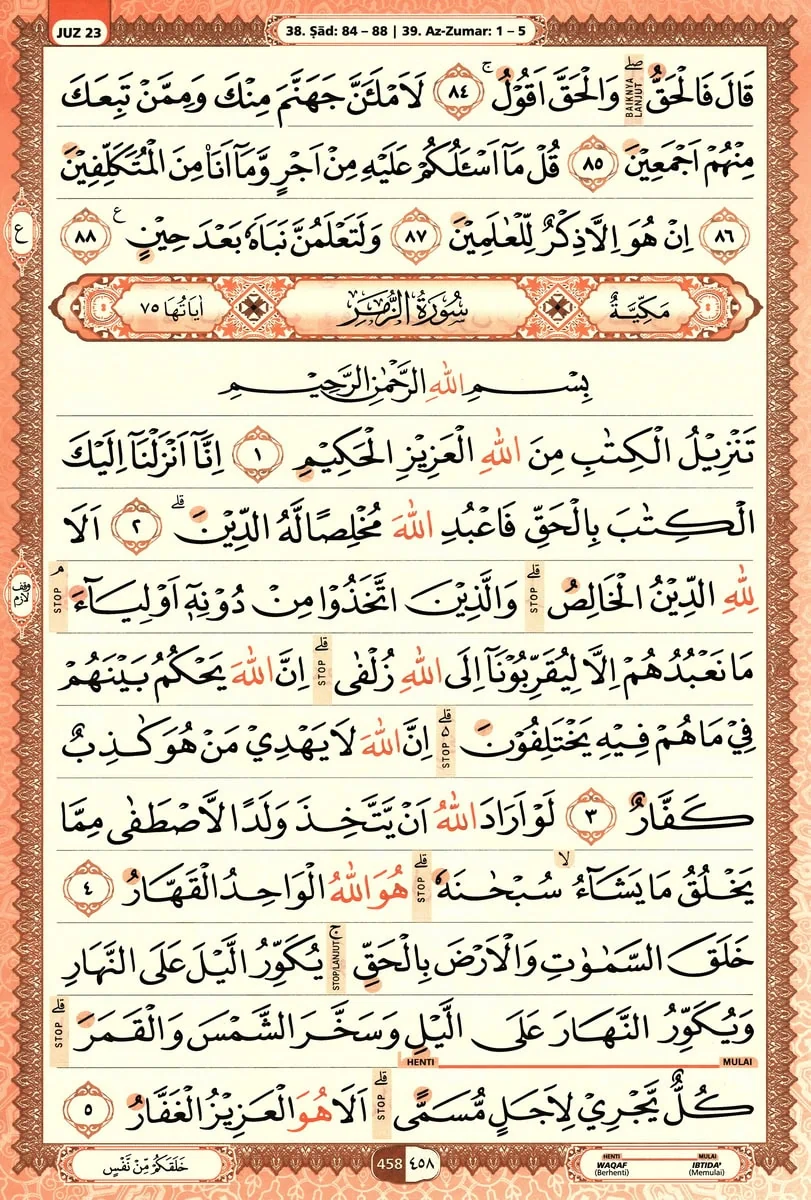 JUZ 23
38. Ṣād: 84 – 88 | 39. Az-Zumar: 1 – 5
قَالَ فَالْحَقُّ ۖ وَالْحَقَّ اَقُوْلُ ۚ ﴿٨٤﴾ لَاَمْلَـَٔنَّ جَهَنَّمَ مِنْكَ وَمِمَّنْ تَبِعَكَ
BAIKNYA LANJUT
مِنْهُمْ اَجْمَعِيْنَ ﴿٨٥﴾ قُلْ مَآ اَسْـَٔلُكُمْ عَلَيْهِ مِنْ اَجْرٍ وَّمَآ اَنَا۠ مِنَ الْمُتَكَلِّفِيْنَ
﴿٨٦﴾ اِنْ هُوَ اِلَّا ذِكْرٌ لِّلْعٰلَمِيْنَ ﴿٨٧﴾ وَلَتَعْلَمُنَّ نَبَاَهٗ بَعْدَ حِيْنٍ ع ﴿٨٨﴾
ع
مَكِّيَّةٌ سُوْرَةُ الزُّمَرِ اٰيَاتُهَا ٧٥
بِسْمِ اللّٰهِ الرَّحْمٰنِ الرَّحِيْمِ
تَنْزِيْلُ الْكِتٰبِ مِنَ اللّٰهِ الْعَزِيْزِ الْحَكِيْمِ ﴿١﴾ اِنَّآ اَنْزَلْنَآ اِلَيْكَ
الْكِتٰبَ بِالْحَقِّ فَاعْبُدِ اللّٰهَ مُخْلِصًا لَّهُ الدِّيْنَ ۗ ﴿٢﴾ اَلَا
لِلّٰهِ الدِّيْنُ الْخَالِصُ ۗ STOP وَالَّذِيْنَ اتَّخَذُوْا مِنْ دُوْنِهٖٓ اَوْلِيَاۤءَ ۘ STOP
وقف لازم
مَا نَعْبُدُهُمْ اِلَّا لِيُقَرِّبُوْنَآ اِلَى اللّٰهِ زُلْفٰى ۗ STOP اِنَّ اللّٰهَ يَحْكُمُ بَيْنَهُمْ
فِيْ مَا هُمْ فِيْهِ يَخْتَلِفُوْنَ ۗ STOP اِنَّ اللّٰهَ لَا يَهْدِيْ مَنْ هُوَ كٰذِبٌ
كَفَّارٌ ﴿٣﴾ لَوْ اَرَادَ اللّٰهُ اَنْ يَّتَّخِذَ وَلَدًا لَّاصْطَفٰى مِمَّا
يَخْلُقُ مَا يَشَاۤءُ ۙ سُبْحٰنَهٗ ۗ STOP هُوَ اللّٰهُ الْوَاحِدُ الْقَهَّارُ ﴿٤﴾
خَلَقَ السَّمٰوٰتِ وَالْاَرْضَ بِالْحَقِّ ۚ STOP/LANJUT يُكَوِّرُ الَّيْلَ عَلَى النَّهَارِ
وَيُكَوِّرُ النَّهَارَ عَلَى الَّيْلِ وَسَخَّرَ الشَّمْسَ وَالْقَمَرَ ۗ STOP
HENTI MULAI
كُلٌّ يَّجْرِيْ لِاَجَلٍ مُّسَمًّى ۗ STOP اَلَا هُوَ الْعَزِيْزُ الْغَفَّارُ ﴿٥﴾
خَلَقَكُمْ مِّنْ نَّفْسٍ
458 ٤٥٨
HENTI MULAI
WAQAF IBTIDA'
(Berhenti) (Memulai)